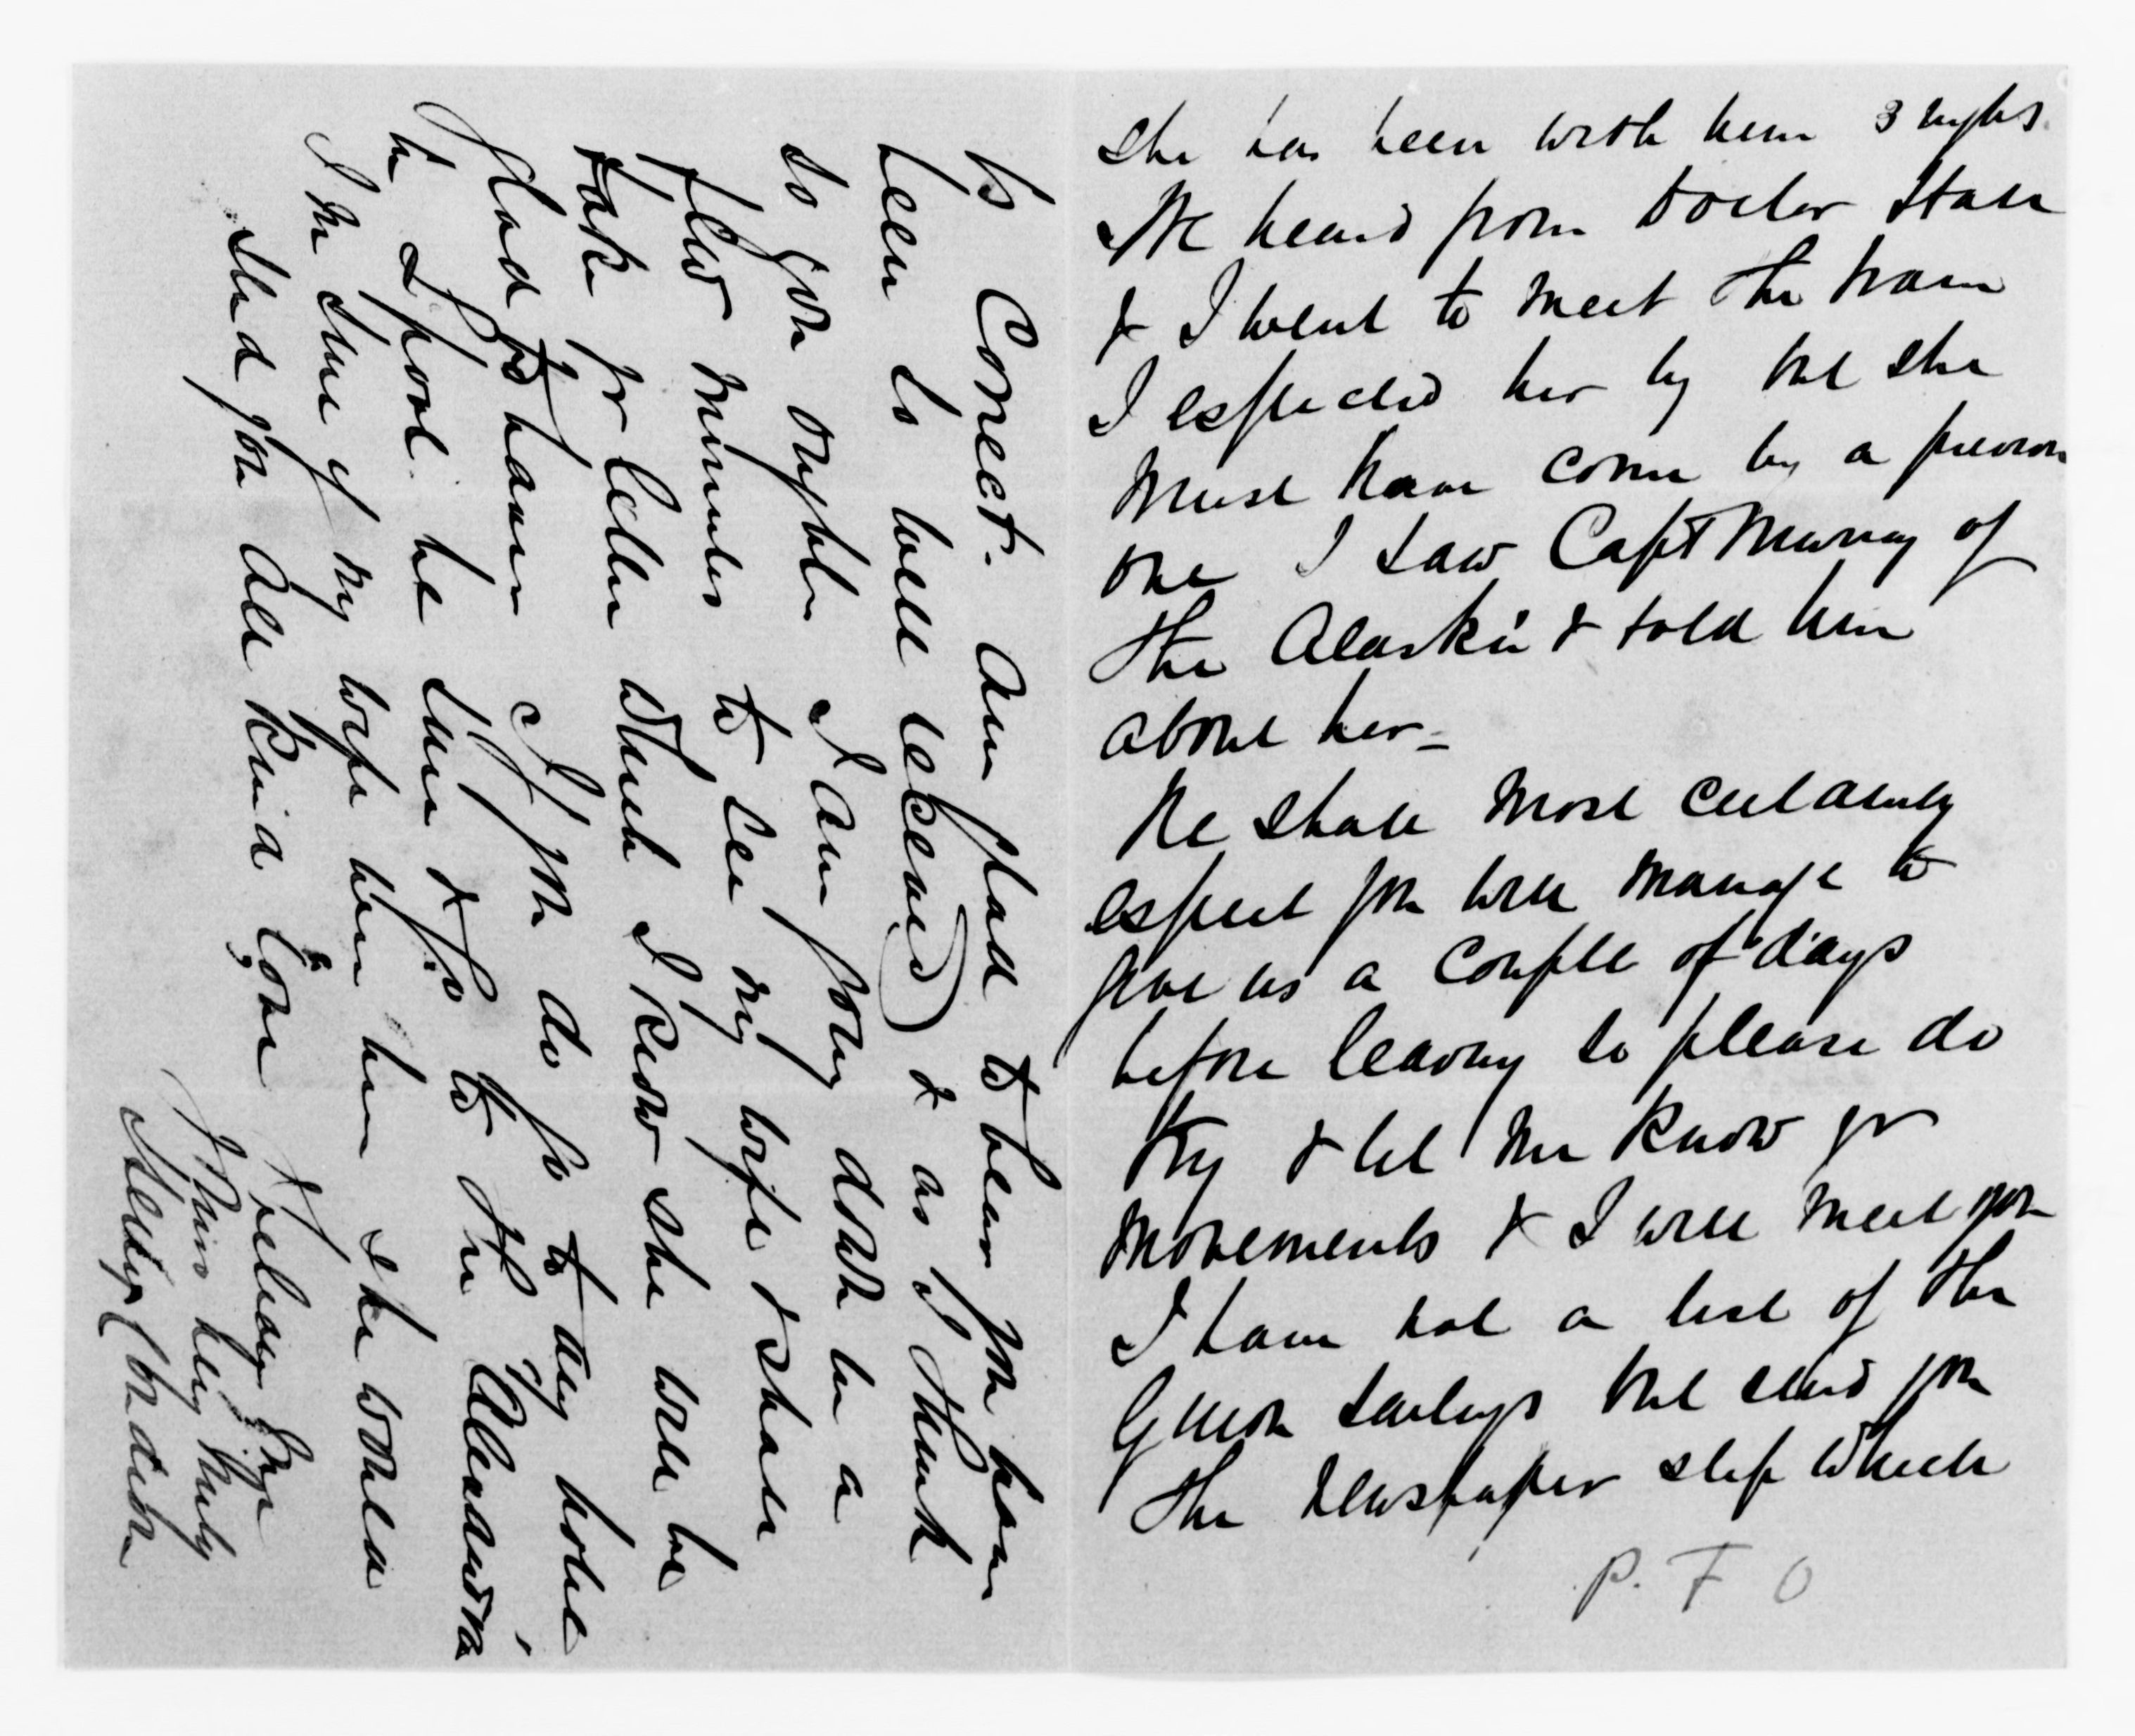 she has been with him 3 nights
We heard from Doctor
& I went to meet the train
I expected her by but she
must have come by a previous
one I saw Capt Murray of
the Alaska & told him
about her -
We shall most certainly
expect you will manage to
give us a couple of days
before leaving so please do
try & let me know yr
movements & I will meet you
I have not a list of the
Guion sailings but send you
the newspaper slip which
P. T O
is correct. Am glad to hear you have
been so well received & as I think
so you ought. I am going down in a
few minutes to see my wife & shall
take yr letter which I know she will be
glad to have If you do go to any hotel
in L'pool be sure & go to the Alexandra
in the time of my wife when here she would
send you all kind love
& believe me
Yours very truly